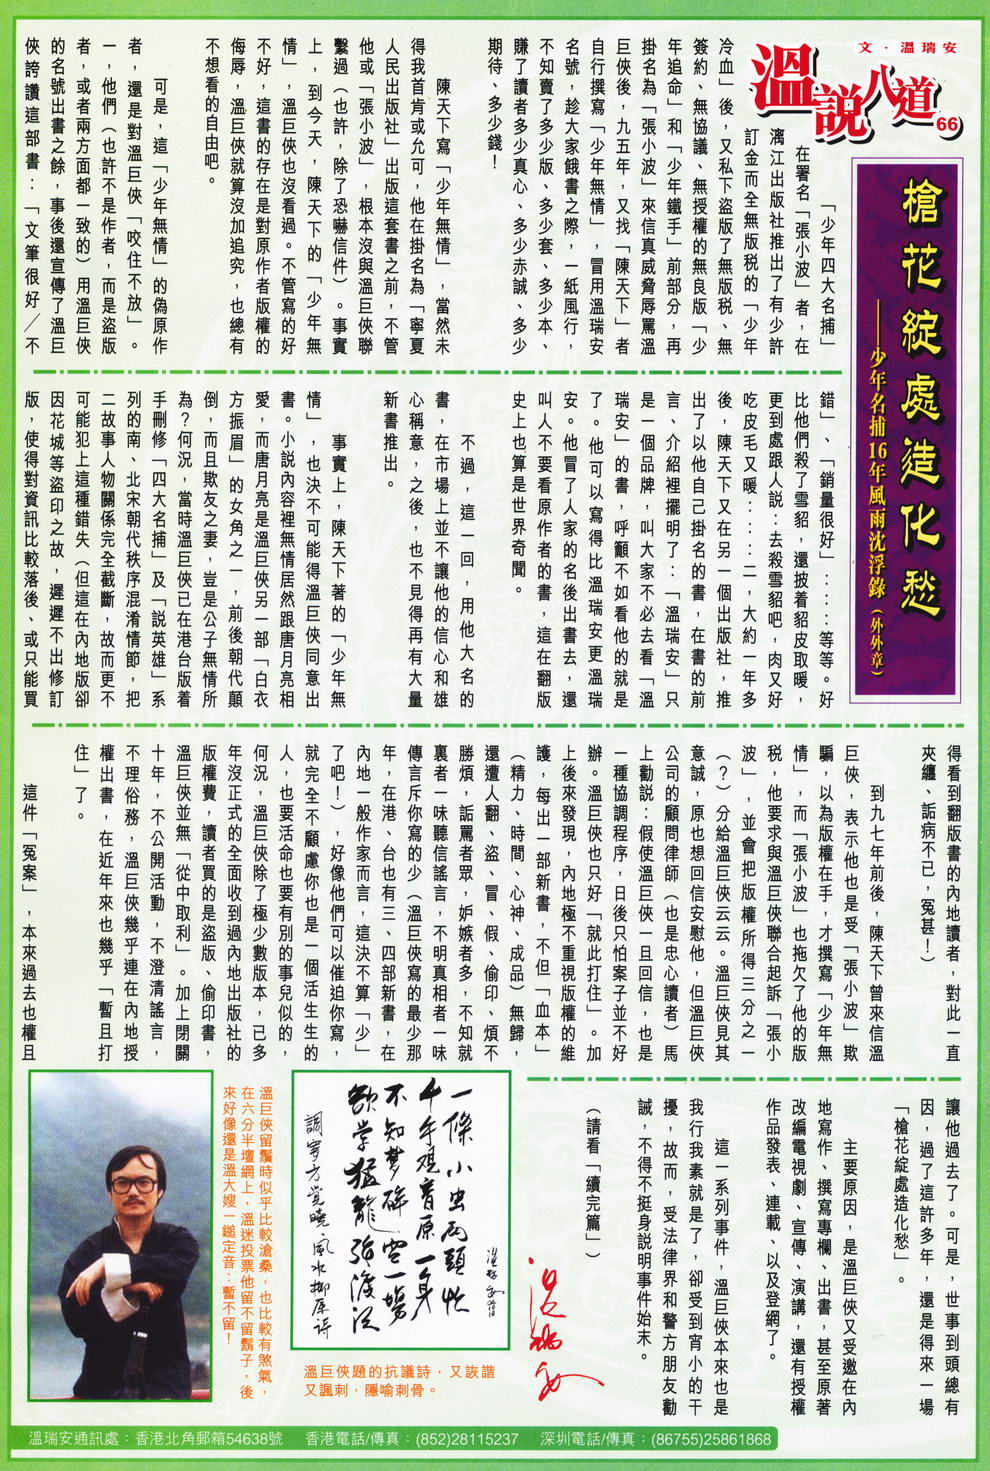 文·溫瑞安
溫說八道
66
槍花綻處造化愁
——少年名捕16年風雨沈浮錄(外外章)
「少年四大名捕」
在署名「張小波」者,在
漓江出版社推出了有少許
訂金而全無版稅的「少年
冷血」後,又私下盜版了無版稅、無
簽約、無協議、無授權的無良版「少
年追命」和「少年鐵手」前部分,再
掛名為「張小波」來信真威脅辱罵溫
巨俠後,九五年,又找「陳天下」者
自行撰寫「少年無情」,冒用溫瑞安
名號,趁大家餓書之際,一紙風行,
不知賣了多少版、多少套、多少本、
賺了讀者多少真心、多少赤誠、多少
期待、多少錢!
陳天下寫「少年無情」,當然未
得我首肯或允可,他在掛名為「寧夏
人民出版社」出版這套書之前,不管
他或「張小波」,根本沒與溫巨俠聯
繫過(也許,除了恐嚇信件)。事實
上,到今天,陳天下的「少年無
情」,溫巨俠也沒看過。不管寫的好
不好,這書的存在是對原作者版權的
侮辱,溫巨俠就算沒加追究,也總有
不想看的自由吧。
可是,這「少年無情」的偽原作
者,還是對溫巨俠「咬住不放」。
一,他們(也許不是作者,而是盜版
者,或者兩方面都一致的)用溫巨俠
的名號出書之餘,事後還宣傳了溫巨
俠誇讚這部書:「文筆很好/不
錯」、「銷量很好」……等等。好
比他們殺了雪貂,還披着貂皮取暖,
更到處跟人說:去殺雪貂吧,肉又好
吃皮毛又暖……二,大約一年多
後,陳天下又在另一個出版社,推
出了以他自己掛名的書,在書的前
言、介紹裡擺明了:「溫瑞安」只
是一個品牌,叫大家不必去看「溫
瑞安」的書,呼籲不如看他的就是
了。他可以寫得比溫瑞安更溫瑞
安。他冒了人家的名後出書去,還
叫人不要看原作者的書,這在翻版
史上也算是世界奇聞。
不過,這一回,用他大名的
書,在市場上並不讓他的信心和雄
心稱意,之後,也不見得再有大量
新書推出。
事實上,陳天下著的「少年無
情」,也決不可能得溫巨俠同意出
書。小說內容裡無情居然跟唐月亮相
愛,而唐月亮是溫巨俠另一部「白衣
方振眉」的女角之一,前後朝代顛
倒,而且欺友之妻,豈是公子無情所
為?何況,當時溫巨俠已在港台版着
手刪修「四大名捕」及「說英雄」系
列的南、北宋朝代秩序混淆情節,把
二故事人物關係完全截斷,故而更不
可能犯上這種錯失(但這在內地版卻
因花城等盜印之故,遲遲不出修訂
版,使得對資訊比較落後、或只能買
得看到翻版書的內地讀者,對此一直
夾纏、詬病不已,冤甚!)
到九七年前後,陳天下曾來信溫
巨俠,表示他也是受「張小波」欺
騙,以為版權在手,才撰寫「少年無
情」,而「張小波」也拖欠了他的版
稅,他要求與溫巨俠聯合起訴「張小
波」,並會把版權所得三分之一
(?)分給溫巨俠云云。溫巨俠見其
意誠,原也想回信安慰他,但溫巨俠
公司的顧問律師(也是忠心讀者)馬
上勸說:假使溫巨俠一旦回信,也是
一種協調程序,日後只怕案子並不好
辦。溫巨俠也只好「就此打住」。加
上後來發現,內地極不重視版權的維
護,每出一部新書,不但「血本」
(精力、時間、心神、成品)無歸,
還遭人翻、盜、冒、假、偷印、煩不
勝煩,詬罵者眾,妒嫉者多,不知就
裏者一味聽信謠言,不明真相者一味
傳言斥你寫的少(溫巨俠寫的最少那
年,在港、台也有三、四部新書,在
內地一般作家而言,這決不算「少」
了吧!),好像他們可以催迫你寫,
就完全不顧慮你也是一個活生生的
人,也要活命也要有別的事兒似的,
何況,溫巨俠除了極少數版本,已多
年沒正式的全面收到過內地出版社的
版權費,讀者買的是盜版、偷印書,
溫巨俠並無「從中取利」。加上閉關
十年,不公開活動,不澄清謠言,
不理俗務,溫巨俠幾乎連在內地授
權出書,在近年來也幾乎「暫且打
住」了。
這件「冤案」,本來過去也權且
讓他過去了。可是,世事到頭總有
因,過了這許多年,還是得來一場
「槍花綻處造化愁」。
主要原因,是溫巨俠又受邀在內
地寫作、撰寫專欄、出書,甚至原著
改編電視劇、宣傳、演講,還有授權
作品發表、連載、以及登網了。
這一系列事件,溫巨俠本來也是
我行我素就是了,卻受到宵小的干
擾,故而,受法律界和警方朋友勸
誡,不得不挺身説明事件始末。
(請看「續完篇」)
溫瑞安
一條小虫兩頭忙
千手觀音原一身
不知夢碎空一場
欲學猛龍強渡江
調寄方覺曉·風水柳原詩
溫巨俠題的抗議詩,又詼諧
又諷刺,隱喻刺骨。
溫巨俠留鬚時似乎比較滄桑,也比較有煞氣,
在六分半壇網上,溫迷投票他留不留鬍子,後
來好像還是溫大嫂一鎚定音:暫不留!
溫瑞安通訊處:香港北角郵箱54638號 香港電話/傳真:(852)28115237 深圳電話/傳真:(86755)25861868